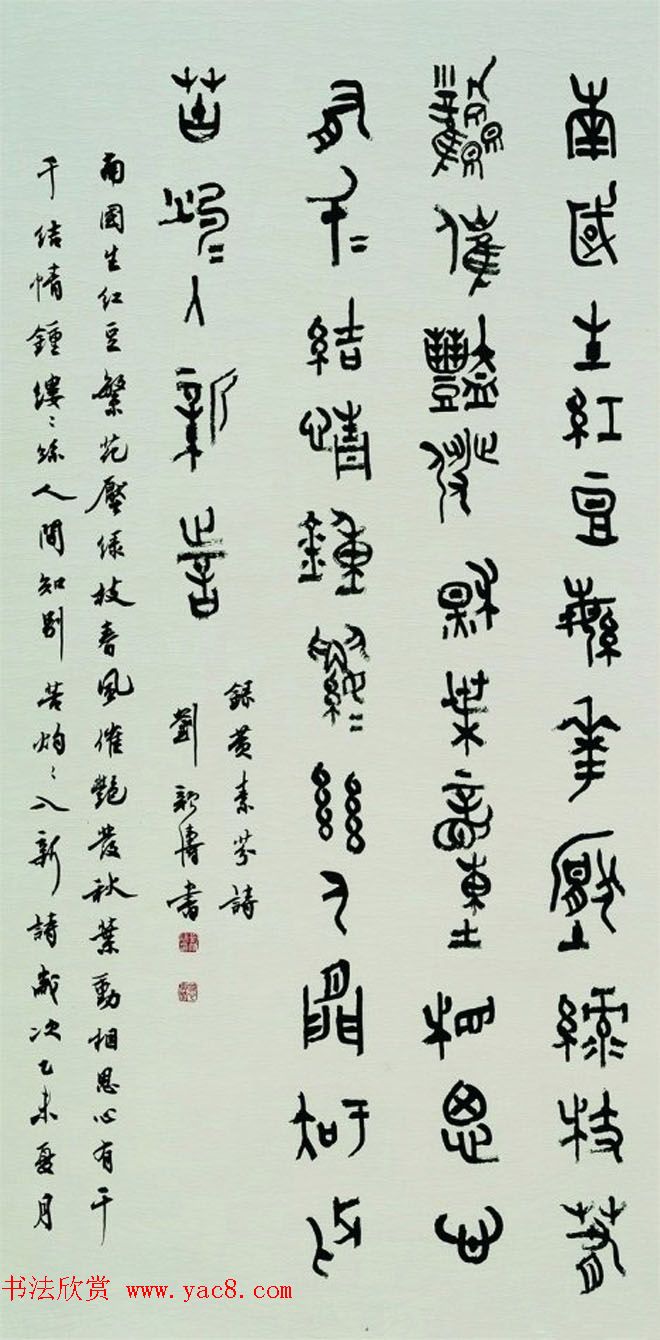 南國生紅豆繁華壓綠枝春
風催艷發秋葉動相思心
有千=結情鍾縷=絲人間知別
苦灼=入新詩
録黄素芬詩
劉新德書
南國生紅豆繁花壓綠枝春風催艷發秋葉動相思心有千
千結情鍾縷:絲人間知別苦灼:入新詩歲次乙未夏月
书法欣赏 www.yac8.com